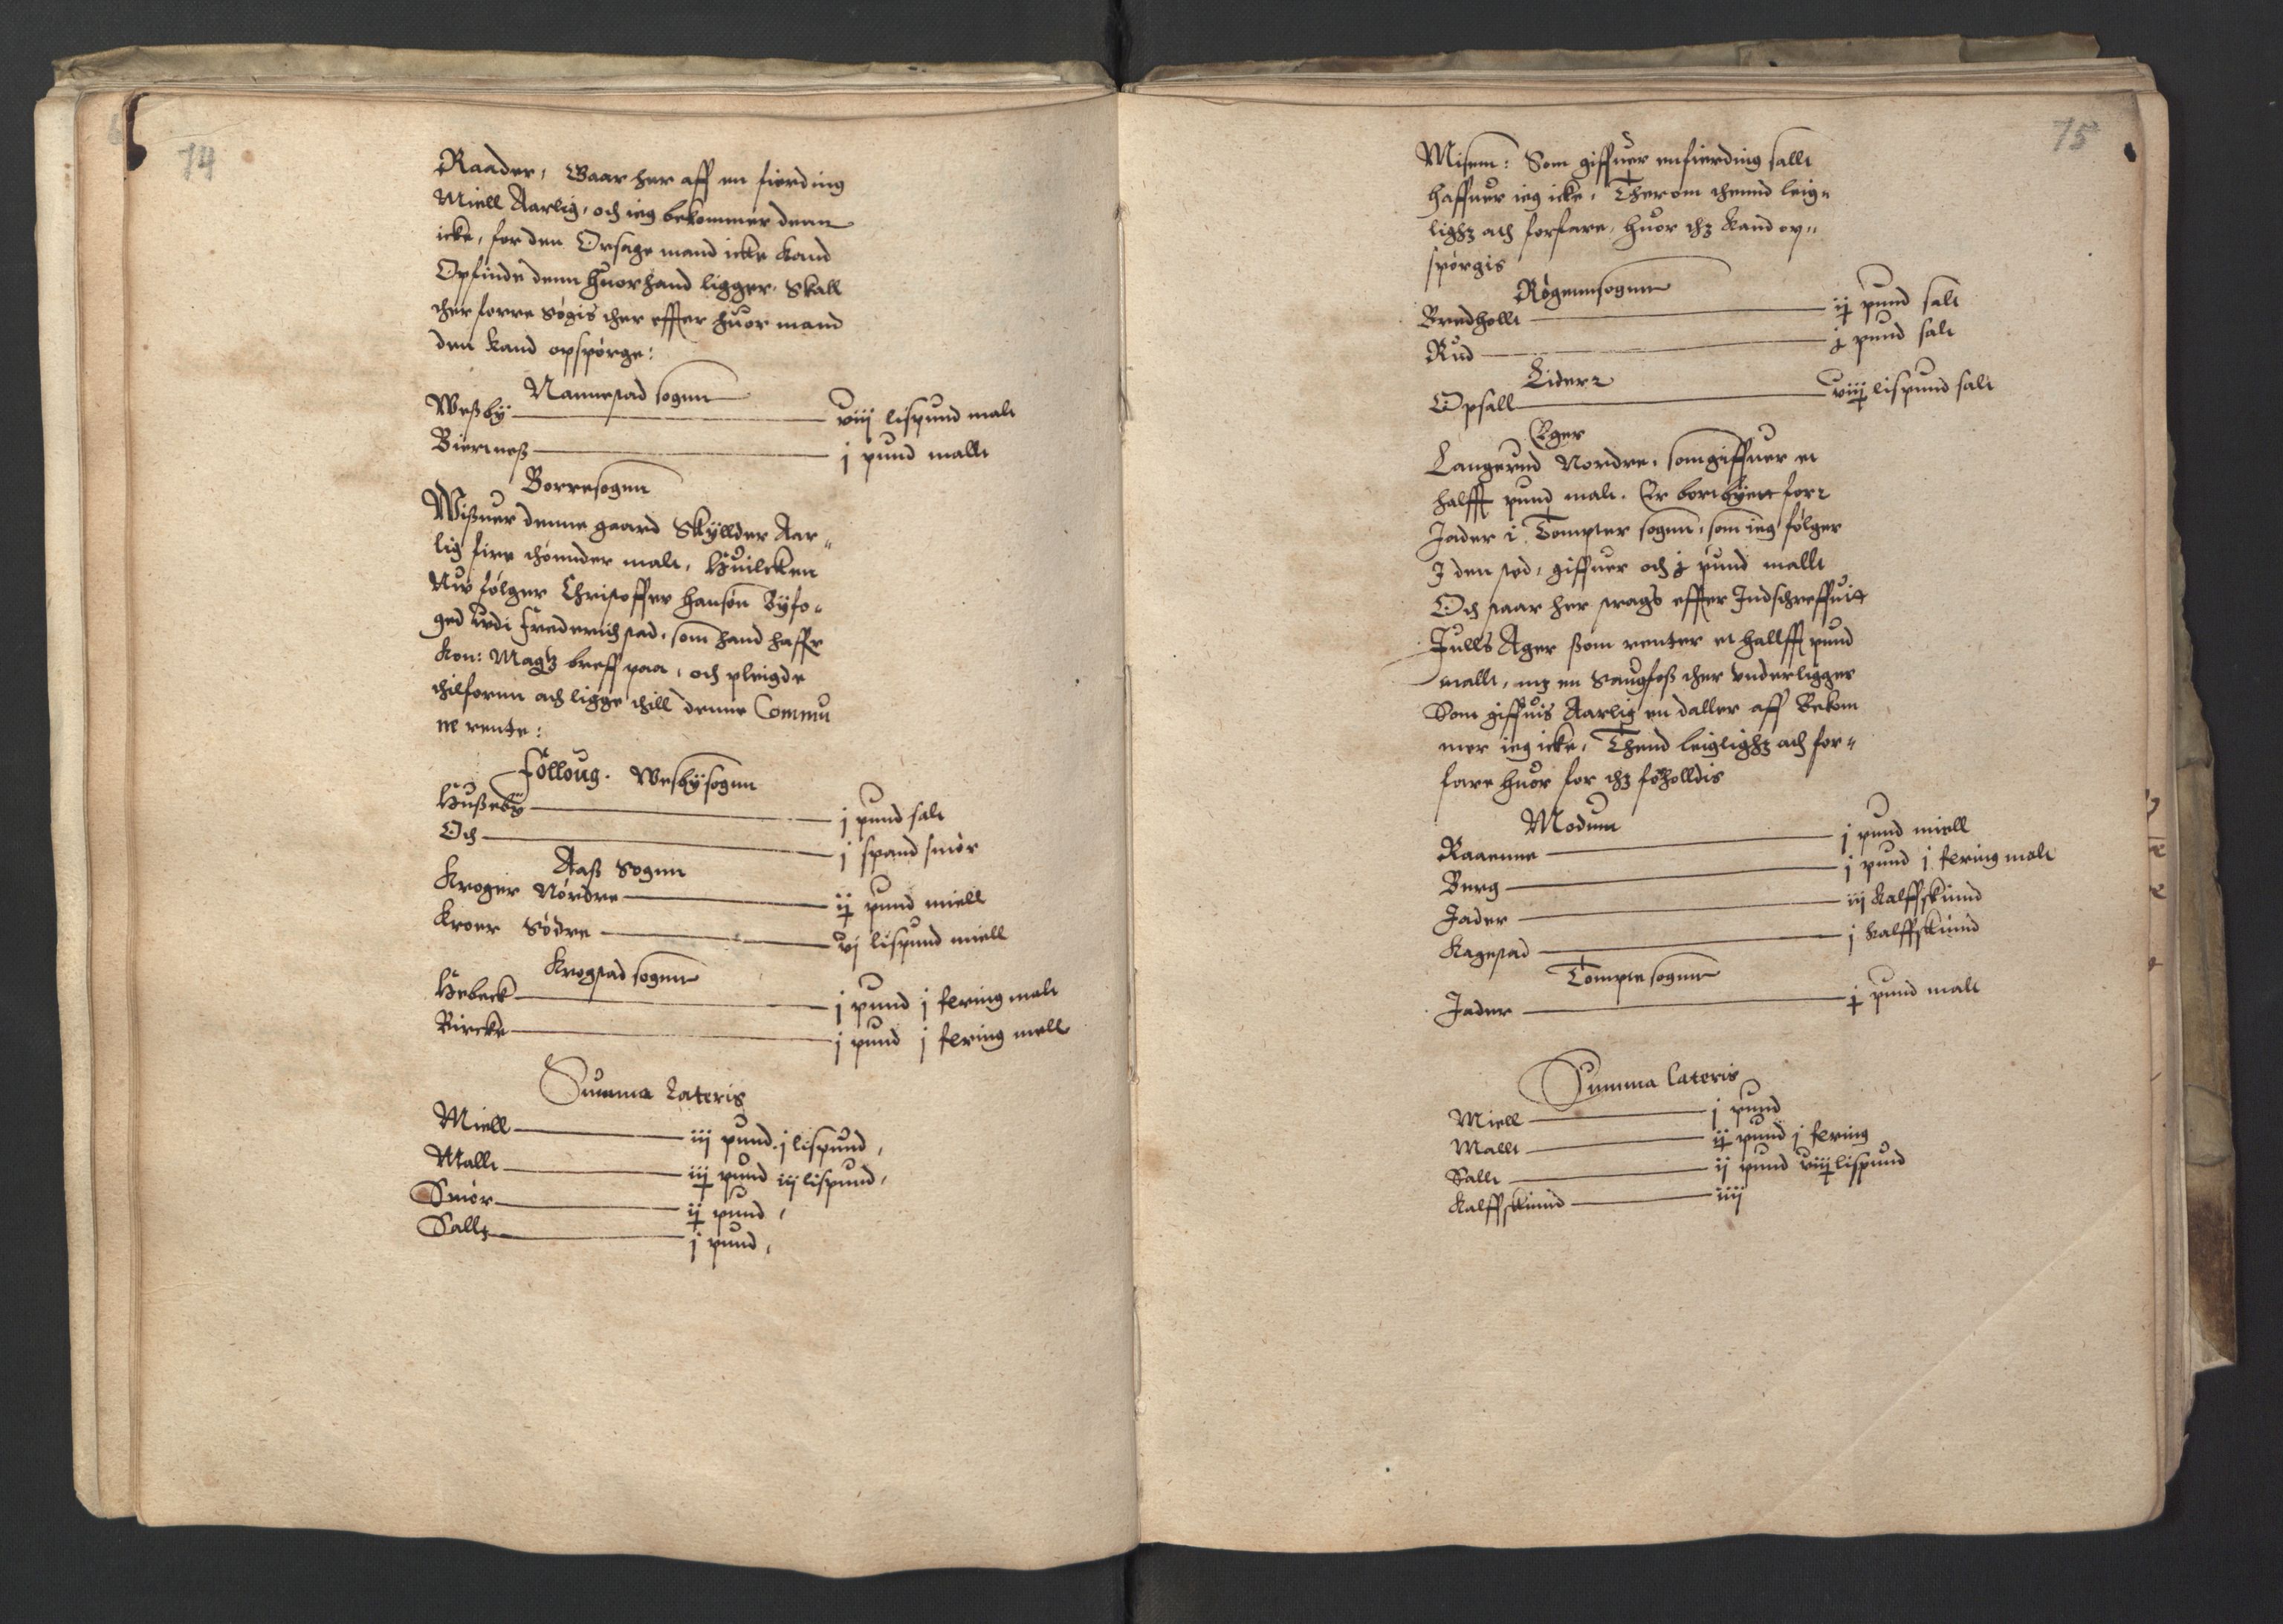 74
Raader, Waar her aff en fierding
Miell Aarlig, och ieg bekommer denn
icke, for den Orsage mand icke kand
Opfinde denn huor hand ligger. Skall
ther forre Søgis ther effter huor mand
den kand opspørge:
Nannestad sognn
Weßby viij lispund malt
Biertneß j pund mallt
Borresognn
Wißuer denne gaard Skyllder Aar-
lig fire thønnder malt, Huilcken
Nu følger Christoffer Hansøn Byfo-
ged udi Frederichstad, som hand haffr
Kon: Magtz breff paa, och pleigde
thilforn ath ligge thill denne Commu
ne rente:
Folloug. Wesby sognn
Hußeby j pund salt
Och j spand smør
Aaß Sognn
Kroger Nordre ij pund miell
Kroer Sødre vj lispund miell
Krogstad sognn
Hebeck j pund j fering malt
Bircke j pund j fering mell
Summa Lateris
Miell iij pund j lispund,
Mallt iij pund iij lispund,
Smør ij pund,
Sallt j pund,
75
Misem: Som giffuer en fierding sallt
haffuer ieg icke, Ther om thennd leig-
lighz ath forfare, huor thz kand op-
spørgis
Røgenn sognn
Bredhollt ij pund salt
Rud j pund salt
Lider
Opsall viij lispund salt
Eger
Langerud Nordre, som giffuer et
halfft pund malt. Er bortbytt for
Jader i Tompter sognn, som ieg følger
I den sted, giffuer och j pund mallt
Och staar her strags effter Indschreffuit
Fulls Ager ßom renter et hallfft pund
mallt, mz en Saugfoß ther underligger
Som giffuis Aarlig en daller aff Bekom
mer ieg icke, Thend leiglighz ath for-
fare huor for thz forholldis
Modum
Raaenne j pund miell
Berg j pund j fering malt
Jader iij kalffskinnd
Kagestad j kalffskinnd
Tompte sognn
Jader j pund malt
Summa Lateris
Miell j pund
Mallt ij pund j fering
Sallt ij pund viij lispund
Kalffskinnd iiij